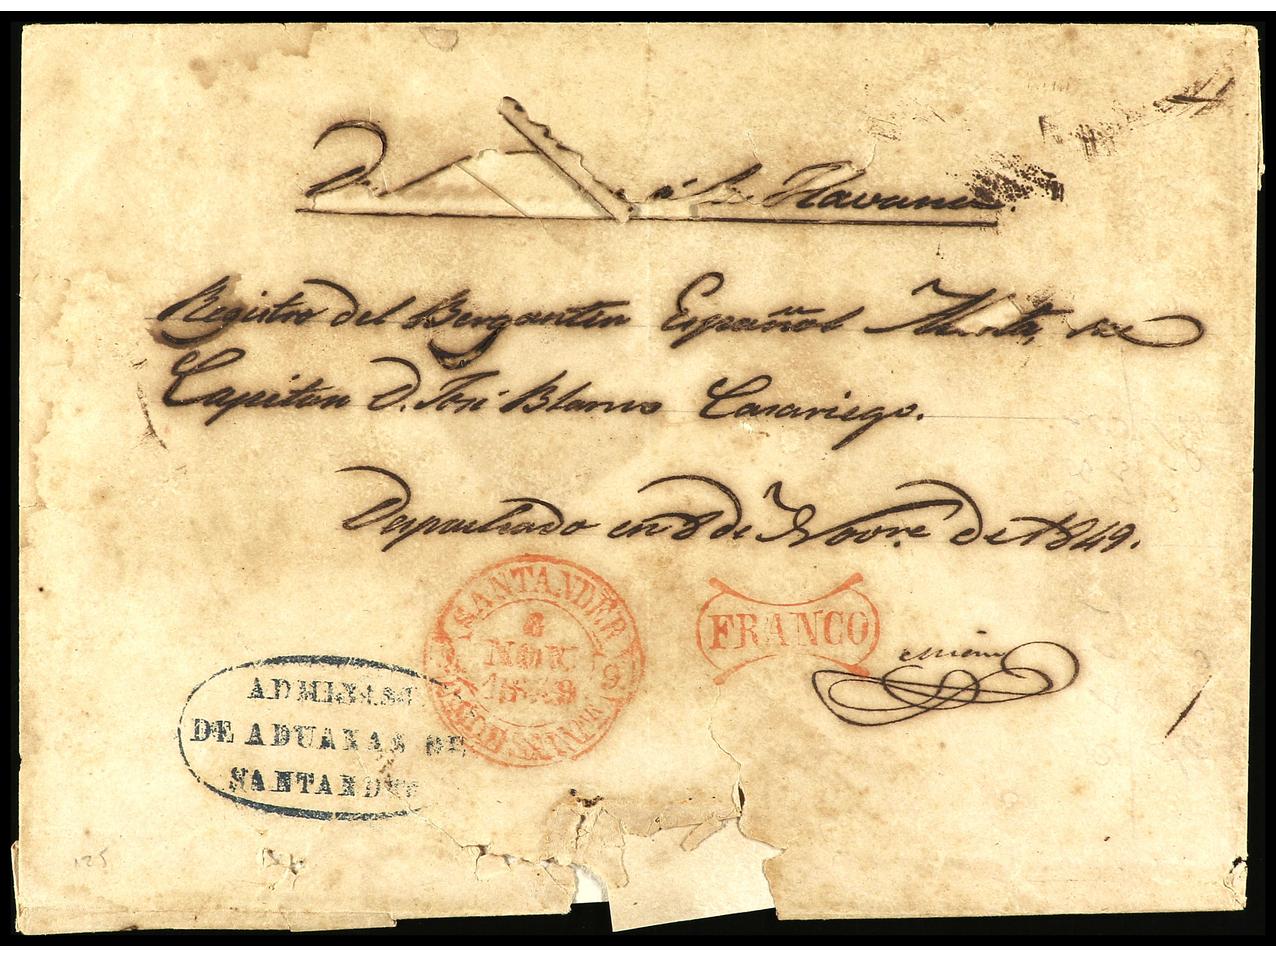 De á la Havana.
Registro del Bergantin Español Marta, su
Capitan D. José Blanco Casariego.
Despachado en 8 de Novre. de 1849.
SANTANDER
8
NOV
1849
FRANCO
ADMINASC
DE ADUANAS DE
SANTANDER
125